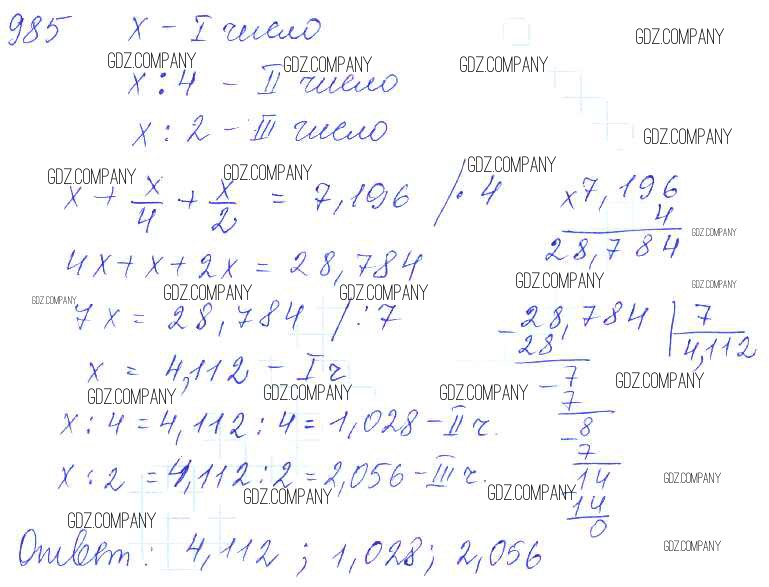 985 x - I число
GDZ.COMPANY
GDZ.COMPANY GDZ.COMPANY GDZ.COMPANY
x : 4 - II число
x : 2 - III число
GDZ.COMPANY
GDZ.COMPANY GDZ.COMPANY GDZ.COMPANY
x + x/4 + x/2 = 7,196 /· 4
× 7,196
4
28,784
GDZ.COMPANY
4x + x + 2x = 28,784
GDZ.COMPANY GDZ.COMPANY GDZ.COMPANY GDZ.COMPANY GDZ.COMPANY
7x = 28,784 /: 7
- 28,784 | 7
28 4,112
- 7
7
- 8
7
14
14
0
x = 4,112 - I ч
GDZ.COMPANY GDZ.COMPANY GDZ.COMPANY GDZ.COMPANY
x : 4 = 4,112 : 4 = 1,028 - II ч.
x : 2 = 4,112 : 2 = 2,056 - III ч.
GDZ.COMPANY GDZ.COMPANY GDZ.COMPANY
GDZ.COMPANY
Ответ: 4,112 ; 1,028 ; 2,056
GDZ.COMPANY